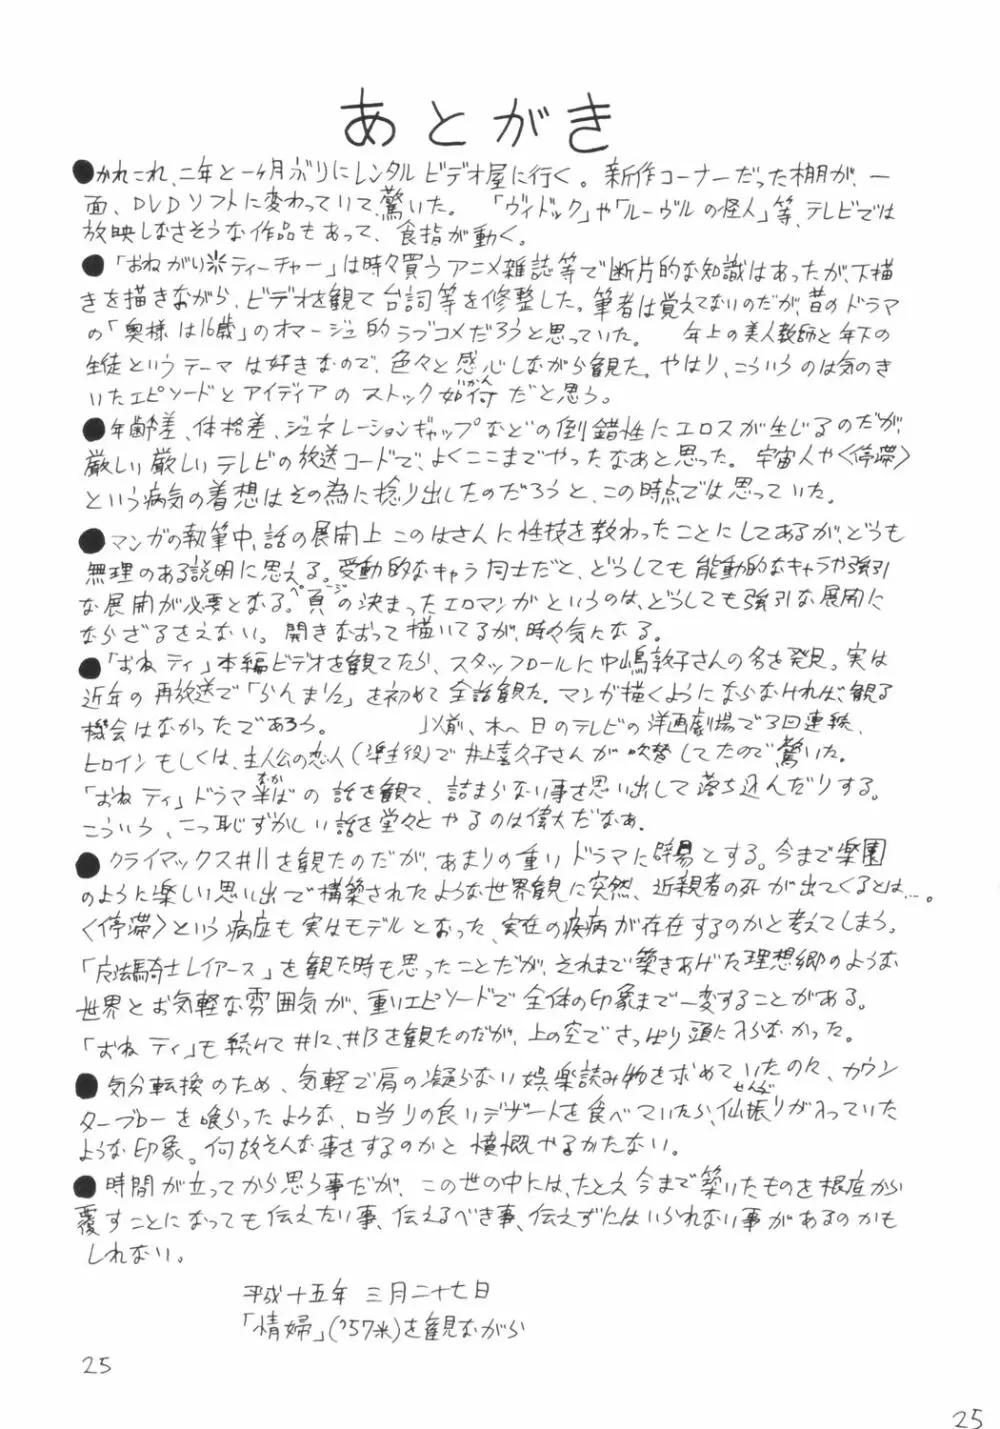 あとがき
●かれこれ、二年と一ヶ月ぶりにレンタルビデオ屋に行く。新作コーナーだった棚が、一
面、DVDソフトに変わっていて、驚いた。「ヴィドック」や「ルーヴルの怪人」等、テレビでは
放映しなさそうな作品もあって、食指が動く。
●「おねがい＊ティーチャー」は時々買うアニメ雑誌等で断片的な知識はあったが、下描
きを描きながら、ビデオを観て台詞等を修整した。筆者は覚えてないのだが、昔のドラマ
の「奥様は16歳」のオマージュ的ラブコメだろうと思っていた。 年上の美人教師と年下の
生徒というテーマは好きなので、色々と感心しながら観た。やはり、こういうのは気のき
いたエピソードとアイディアのストック如何(いかん)だと思う。
●年齢差、体格差、ジェネレーションギャップなどの倒錯性にエロスが生じるのだが、
厳しい厳しいテレビの放送コードで、よくここまでやったなあと思った。宇宙人や〈停滞〉
という病気の着想はその為に捻り出したのだろうと、この時点では思っていた。
●マンガの執筆中、話の展開上このはさんに性技を教わったことにしてあるが、どうも
無理のある説明に思える。受動的なキャラ同士だと、どうしても能動的なキャラや強引
な展開が必要となる。頁(ページ)の決まったエロマンガというのは、どうしても強引な展開に
ならざるをえない。開きなおって描いてるが、時々気になる。
●「おねティ」本編ビデオを観てたら、スタッフロールに中嶋敦子さんの名を発見。実は
近年の再放送で「らんま1/2」を初めて全話観た。マンガ描くようにならなければ、観る
機会はなかったであろう。 以前、木〜日のテレビの洋画劇場で3回連続、
ヒロインもしくは、主人公の恋人(準主役)で井上喜久子さんが吹替してたので驚いた。
「おねティ」ドラマ半(なか)ばの話を観て、詰まらない事を思い出して落ち込んだりする。
こういう、こっ恥ずかしい話を堂々とやるのは偉大だなぁ。
●クライマックス#11を観たのだが、あまりの重いドラマに辟易とする。今まで楽園
のように楽しい思い出で構築されたような世界観に突然、近親者の死が出てくるとは…。
〈停滞〉という病症も実はモデルとなった、実在の疾病が存在するのかと考えてしまう。
「魔法騎士レイアース」を観た時も思ったことだが、それまで築きあげた理想郷のような
世界とお気軽な雰囲気が、重いエピソードで全体の印象まで一変することがある。
「おねティ」も続けて#12、#13を観たのだが、上の空でさっぱり頭に入らなかった。
●気分転換のため、気軽で肩の凝らない娯楽読み物を求めていたのに、カウン
ターブローを喰らったような、口当りの良いデザートを食べていたら、仙振(せんぶ)りが入っていた
ような印象。何故そんな事をするのかと憤慨やるかたない。
●時間が立ってから思う事だが、この世の中には、たとえ今まで築いたものを根底から
覆すことになっても伝えたい事、伝えるべき事、伝えずにはいられない事があるのかも
しれない。
平成十五年 三月二十七日
「情婦」('57米)を観ながら
25
25